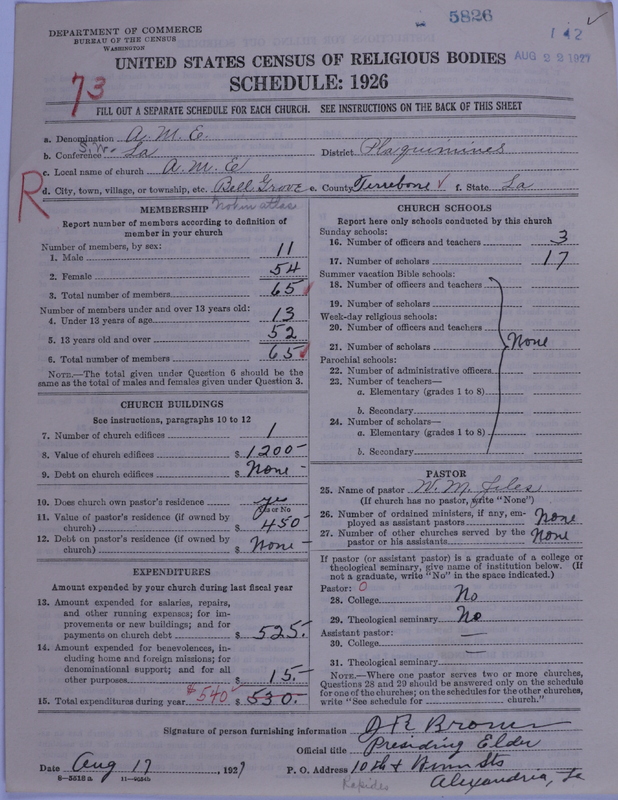 5826
DEPARTMENT OF COMMERCE
BUREAU OF THE CENSUS
WASHINGTON
1 42 ✓
AUG 22 1927
UNITED STATES CENSUS OF RELIGIOUS BODIES
SCHEDULE: 1926
73
FILL OUT A SEPARATE SCHEDULE FOR EACH CHURCH. SEE INSTRUCTIONS ON THE BACK OF THIS SHEET
a. Denomination A. M. E.
b. Conference S. W. La District Plaquimines
c. Local name of church A M E
R
d. City, town, village, or township, etc. Bell Grove e. County Terrebone ✓ f. State La
Not in atlas
MEMBERSHIP
Report number of members according to definition of
member in your church
Number of members, by sex:
1. Male 11
2. Female 54
3. Total number of members 65
Number of members under and over 13 years old:
4. Under 13 years of age 13
5. 13 years old and over 52
6. Total number of members 65
NOTE.—The total given under Question 6 should be
same as the total of males and females given under Question 3.
CHURCH BUILDINGS
See instructions, paragraphs 10 to 12
7. Number of church edifices 1
8. Value of church edifices $ 1200-
9. Debt on church edifices $ None -
10. Does church own pastor's residence yes
Yes or No
11. Value of pastor's residence (if owned by
church) $ 450-
12. Debt on pastor's residence (if owned by
church) $ None -
EXPENDITURES
Amount expended by your church during last fiscal year
13. Amount expended for salaries, repairs,
and other running expenses; for im-
provements or new buildings; and for
payments on church debt $ 525.
14. Amount expended for benevolences, in-
cluding home and foreign missions; for
denominational support; and for all
other purposes $ 15.-
15. Total expenditures during year $540 ✓ $ 530.
CHURCH SCHOOLS
Report here only schools conducted by this church
Sunday schools:
16. Number of officers and teachers 3
17. Number of scholars 17
Summer vacation Bible schools:
18. Number of officers and teachers
19. Number of scholars
Week-day religious schools:
20. Number of officers and teachers
21. Number of scholars None
Parochial schools:
22. Number of administrative officers
23. Number of teachers—
a. Elementary (grades 1 to 8)
b. Secondary
24. Number of scholars—
a. Elementary (grades 1 to 8)
b. Secondary
PASTOR
25. Name of pastor W. M. Jiles
(If church has no pastor, write "None")
26. Number of ordained ministers, if any, em-
ployed as assistant pastors None
27. Number of other churches served by the
pastor or his assistants None
If pastor (or assistant pastor) is a graduate of a college or
theological seminary, give name of institution below. (If
not a graduate, write "No" in the space indicated.)
Pastor: 0
28. College No
29. Theological seminary No
Assistant pastor:
30. College —
31. Theological seminary
NOTE.—Where one pastor serves two or more churches,
Questions 28 and 29 should be answered only on the schedule
for one of the churches; on the schedules for the other churches,
write "See schedule for church."
Signature of person furnishing information J R Brown
Official title Presiding Elder
Date Aug 17, 1927 P. O. Address 10th & Sts
Alexandria, La
Rapides